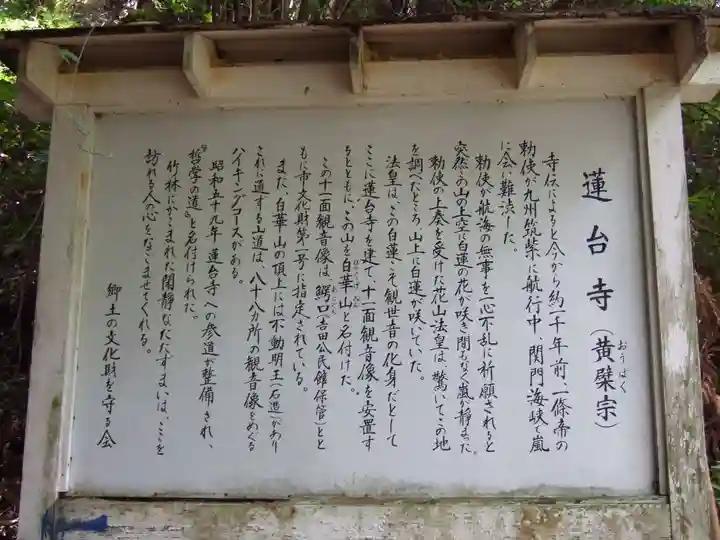 蓮台寺(黄檗宗)
おうばく
寺伝によると今から約一千年前、一條帝の
勅使が九州筑紫に航行中、関門海峡で嵐
に会い難渋した。
勅使が航海の無事を一心不乱に祈願されると
突然この山の上空に白蓮の花が咲き間もなく嵐が静まった。
勅使の上奏を受けた花山法皇は、驚いてこの地
を調べたところ、山上に白蓮が咲いていた。
法皇は、この白蓮こそ観世音の化身だとして
ここに蓮台寺を建て、十一面観音像を安置す
るとともに、この山を白華山と名付けた。
この十一面観音像は、鰐口(吉田公民館保管)とと
もに市文化財第一号に指定されている。
また、白華山の頂上には不動明王(石造)があり
これに通する山道は、八十八カ所の観音像をめぐる
ハイキングコースがある。
昭和五十九年 蓮台寺への参道が整備され、
"哲学の道"と名付けられた。
竹林にかこまれた閑静なたたずまいは、ここを
訪れる人の心をなごませてくれる。
郷土の文化財を守る会